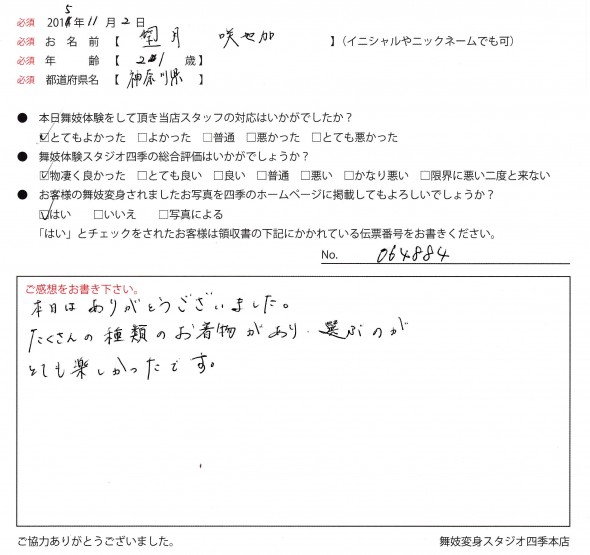 必須 2015年11月2日
必須 お名前【 望月 咲也加 】(イニシャルやニックネームでも可)
必須 年齢【 21 歳】
必須 都道府県名【 神奈川県 】
● 本日舞妓体験をして頂き当店スタッフの対応はいかがでしたか?
☑とてもよかった □よかった □普通 □悪かった □とても悪かった
● 舞妓体験スタジオ四季の総合評価はいかがでしょうか?
☑物凄く良かった □とても良い □良い □普通 □悪い □かなり悪い □限界に悪い二度と来ない
● お客様の舞妓変身されましたお写真を四季のホームページに掲載してもよろしいでしょうか?
☑はい □いいえ □写真による
「はい」とチェックをされたお客様は領収書の下記にかかれている伝票番号をお書きください。
No. 064884
ご感想をお書き下さい。
本日はありがとうございました。
たくさんの種類のお着物があり、選ぶのが
とても楽しかったです。
ご協力ありがとうございました。 舞妓変身スタジオ四季本店